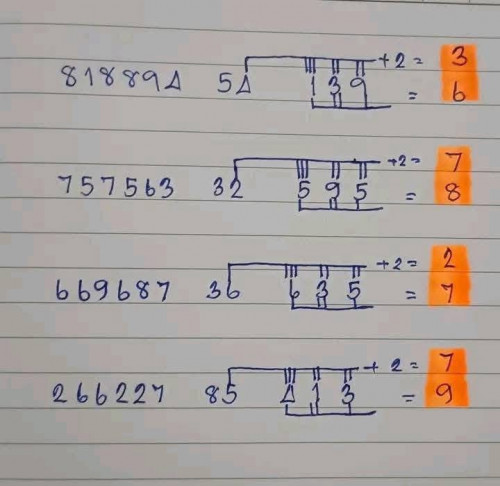 +2= 3
818894 54 139 = 6
+2= 7
757563 32 595 = 8
+2= 2
669687 36 635 = 7
+2= 7
266227 85 413 = 9